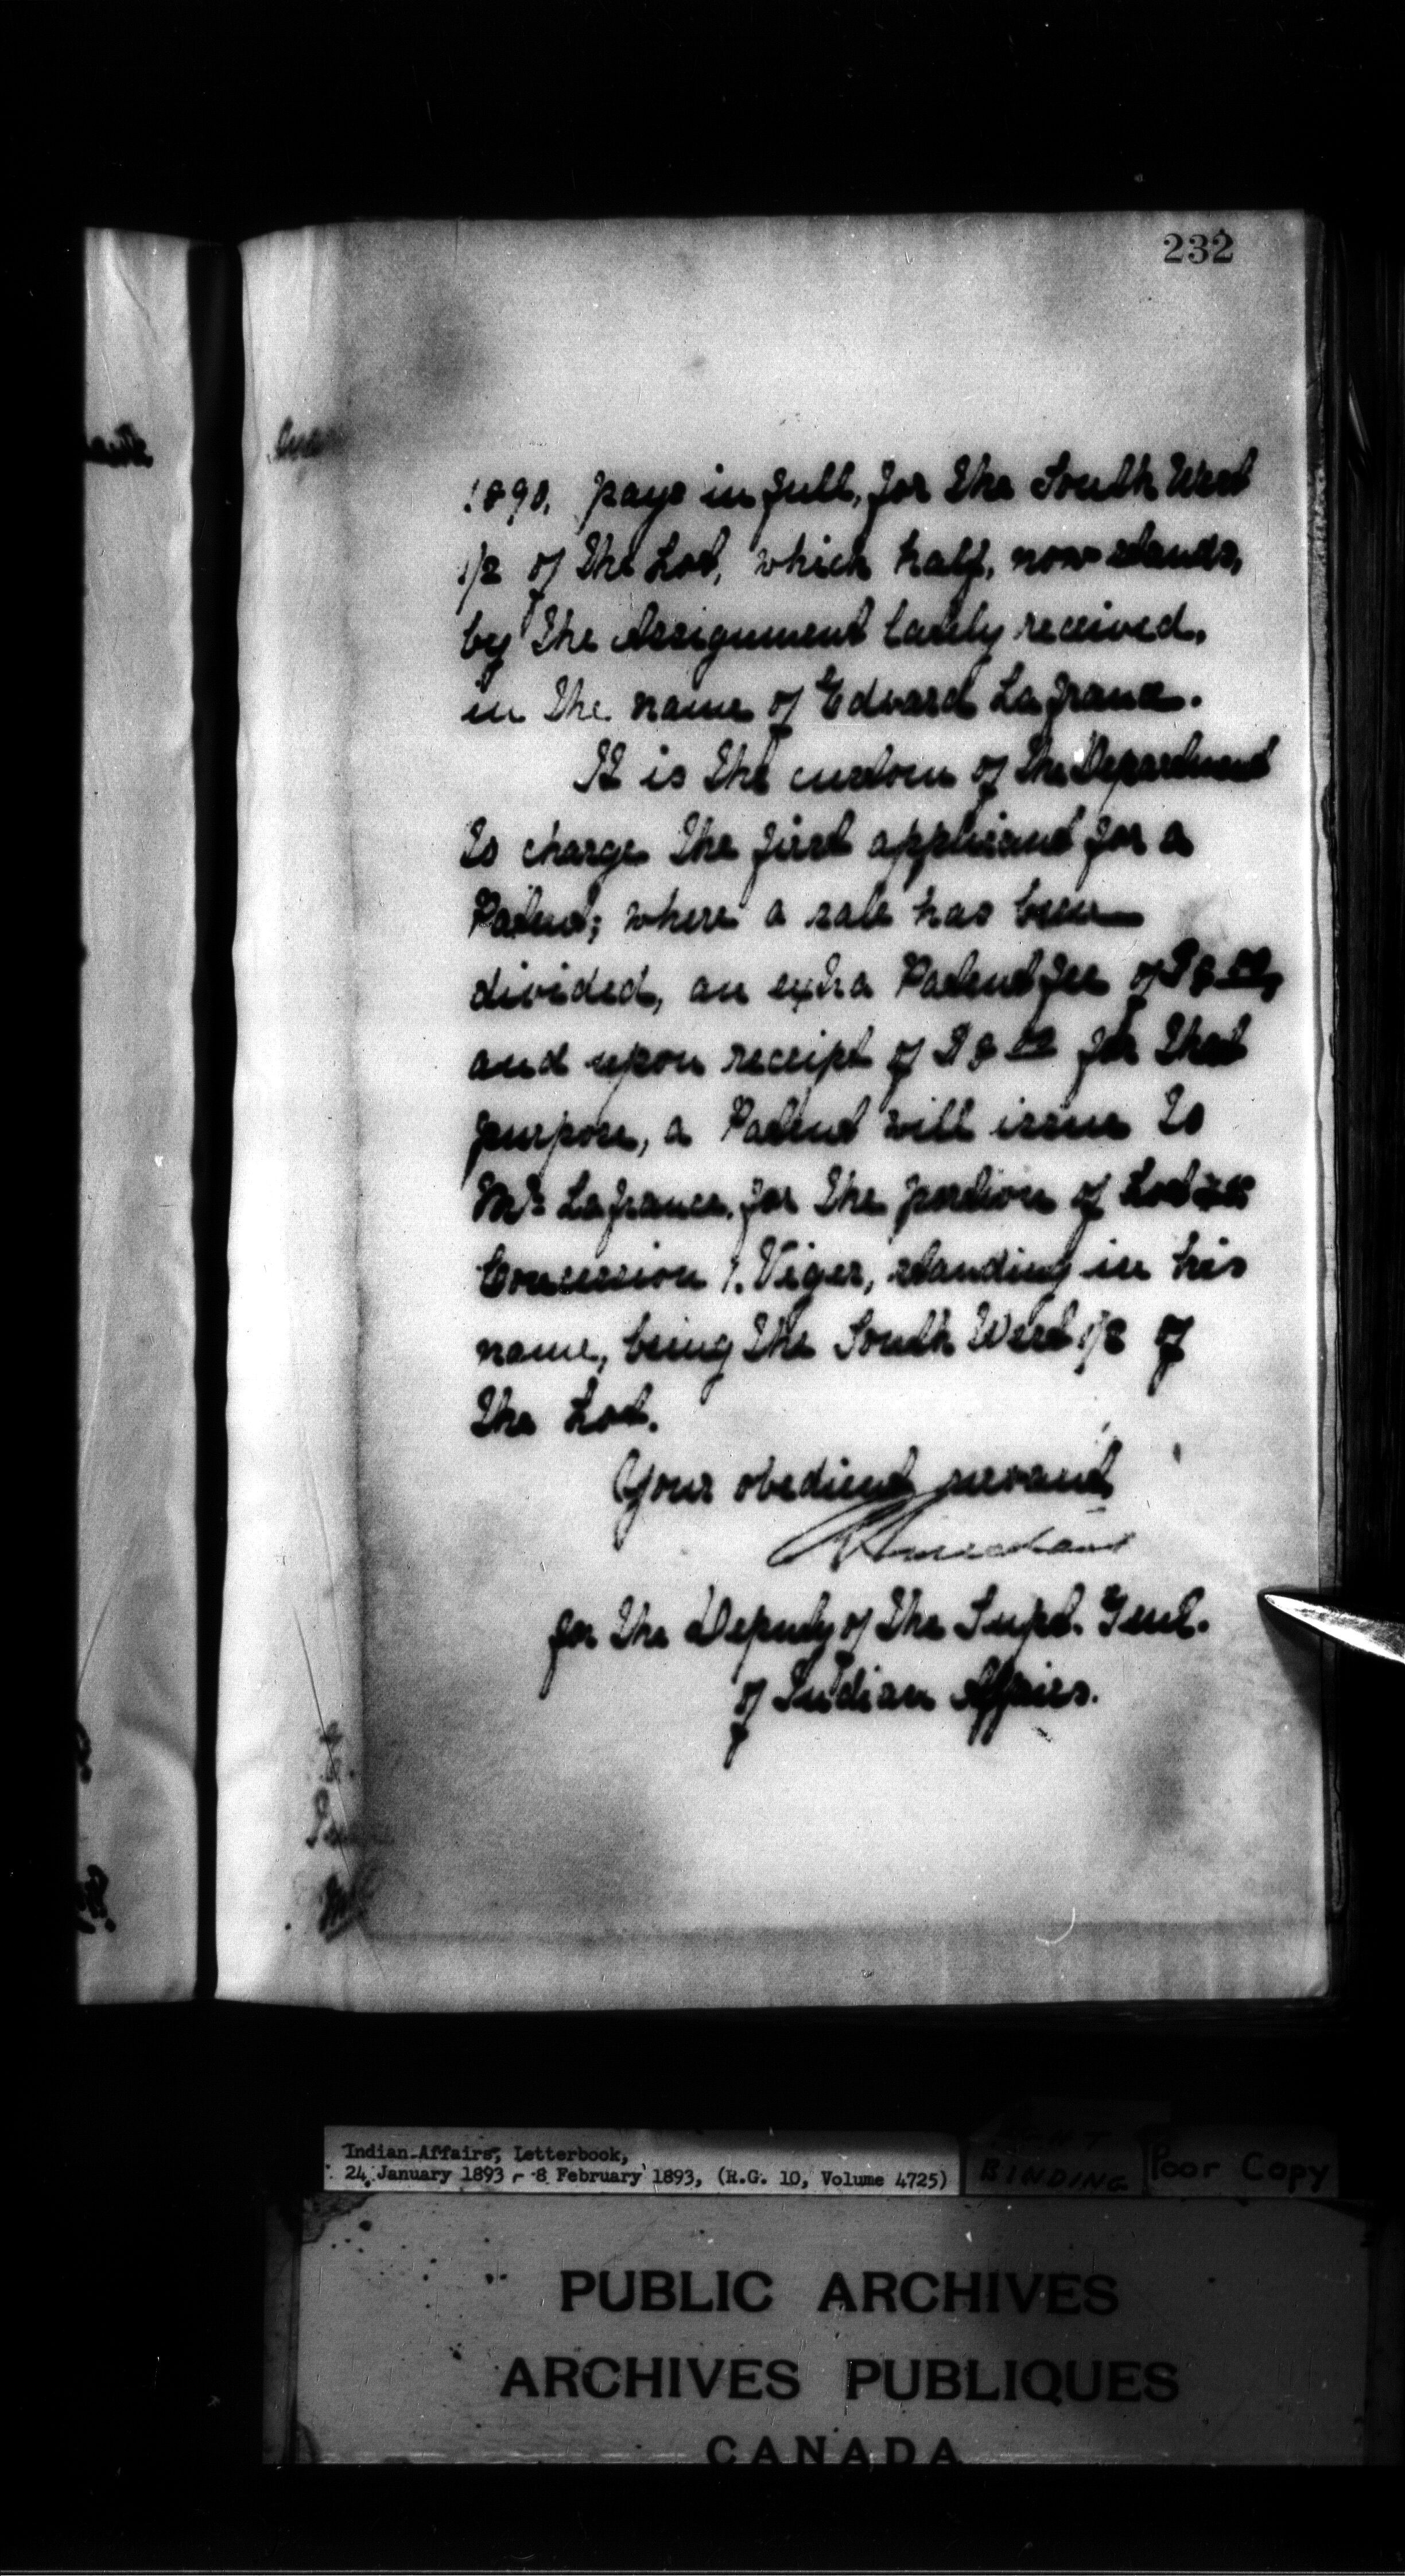 232
1890, pays in full, for the South West
1/2 of the Lot, which half, now stands,
by the Assignment lately received,
in the name of Edward Lafrance.
It is the custom of the Department
to charge the first applicant for a
Patent; where a sale has been
divided, an extra Patent fee of
and upon receipt of for that
purpose, a Patent will issue to
Mr. Lafrance, for the portion of Lot
Concession 1. Viger, standing in his
name, being the South West 1/2 of
the Lot.
Your obedient servant
for the Deputy of the Supt. Genl.
of Indian Affairs.
Indian Affairs, Letterbook,
24 January 1893 - 8 February 1893, (R.G. 10, Volume 4725)
BINDING
Poor Copy
PUBLIC ARCHIVES
ARCHIVES PUBLIQUES
CANADA